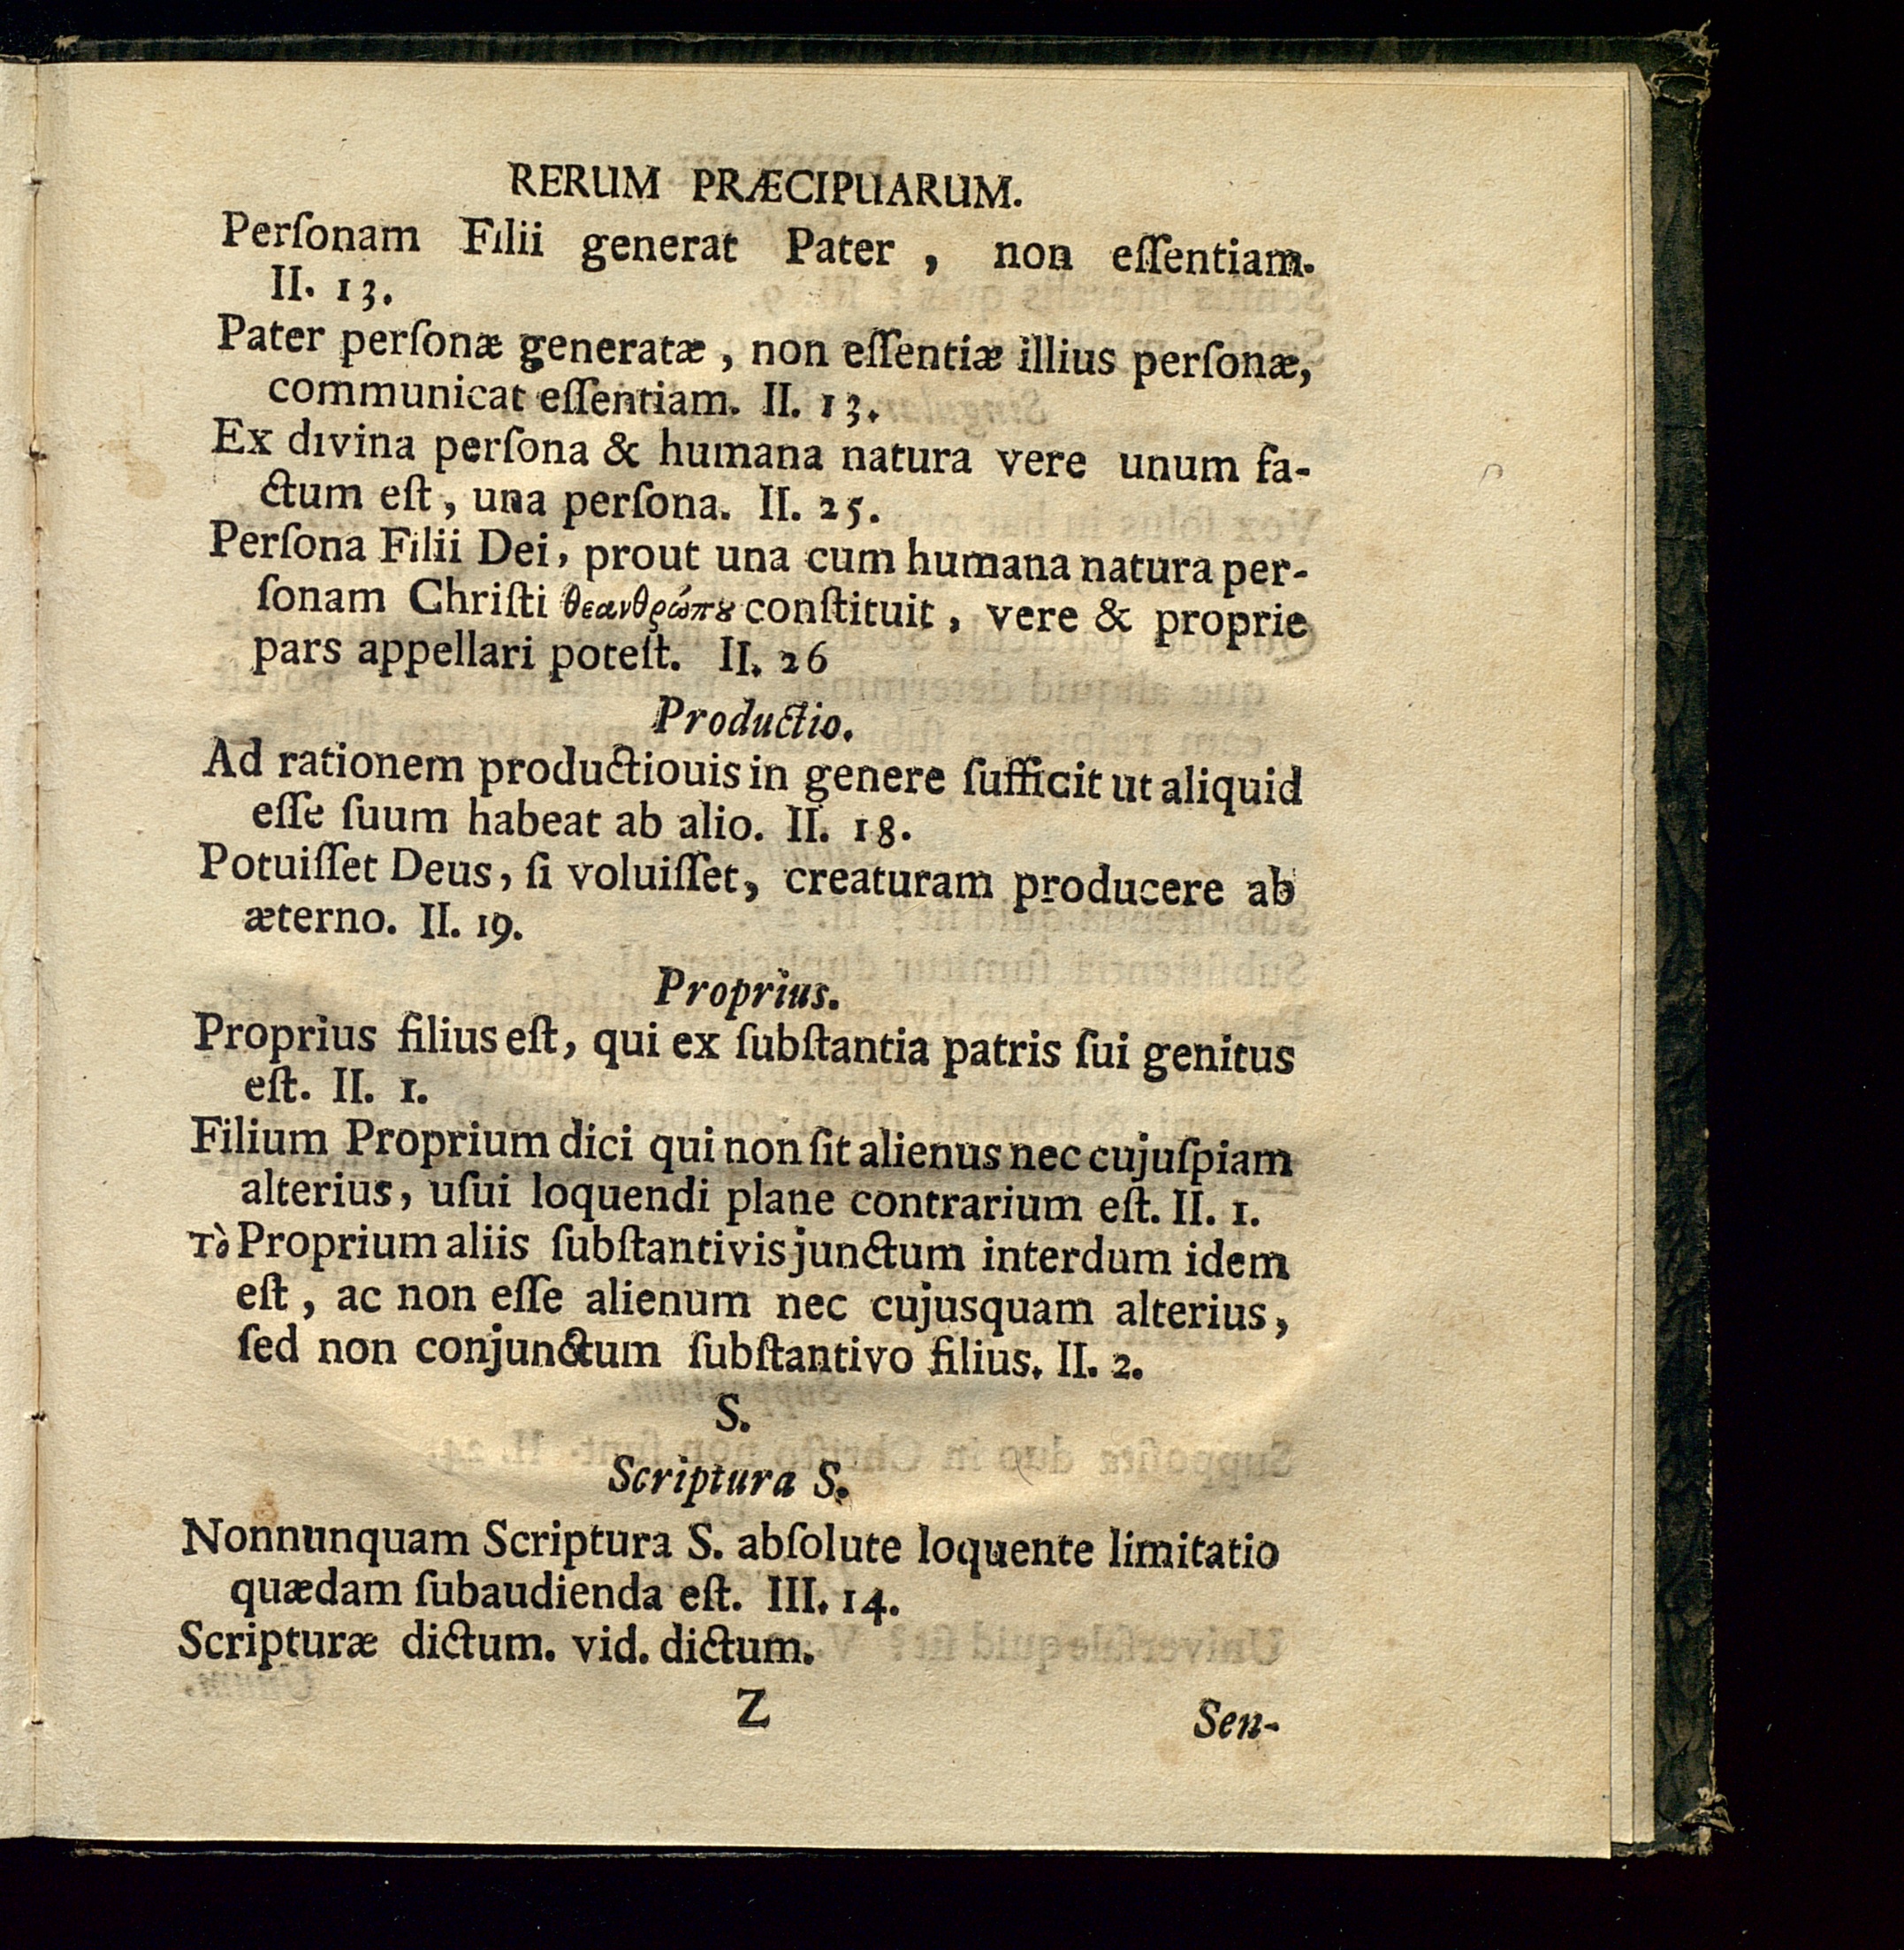 RERUM PRÆCIPUARUM.
Perſonam Filii generat Pater, non eſſentiam.
II. 13.
Pater perſonæ generatæ, non eſſentiæ illius perſonæ,
communicat eſſentiam. II. 13.
Ex divina perſona & humana natura vere unum fa-
ctum eſt, una perſona. II. 25.
Perſona Filii Dei, prout una cum humana natura per-
ſonam Chriſti θεανθρώπȣ conſtituit, vere & proprie
pars appellari poteſt. II. 26
Productio.
Ad rationem productiouis in genere ſufficit ut aliquid
eſſe ſuum habeat ab alio. II. 18.
Potuiſſet Deus, ſi voluiſſet, creaturam producere ab
æterno. II. 19.
Proprius.
Proprius filius eſt, qui ex ſubſtantia patris ſui genitus
eſt. II. 1.
Filium Proprium dici qui non ſit alienus nec cujuſpiam
alterius, uſui loquendi plane contrarium eſt. II. 1.
Τὸ Proprium aliis ſubſtantivis junctum interdum idem
eſt, ac non eſſe alienum nec cujusquam alterius,
ſed non conjunctum ſubſtantivo filius. II. 2.
S.
Scriptura S.
Nonnunquam Scriptura S. abſolute loquente limitatio
quædam ſubaudienda eſt. III. 14.
Scripturæ dictum. vid. dictum.
Z
Sen-